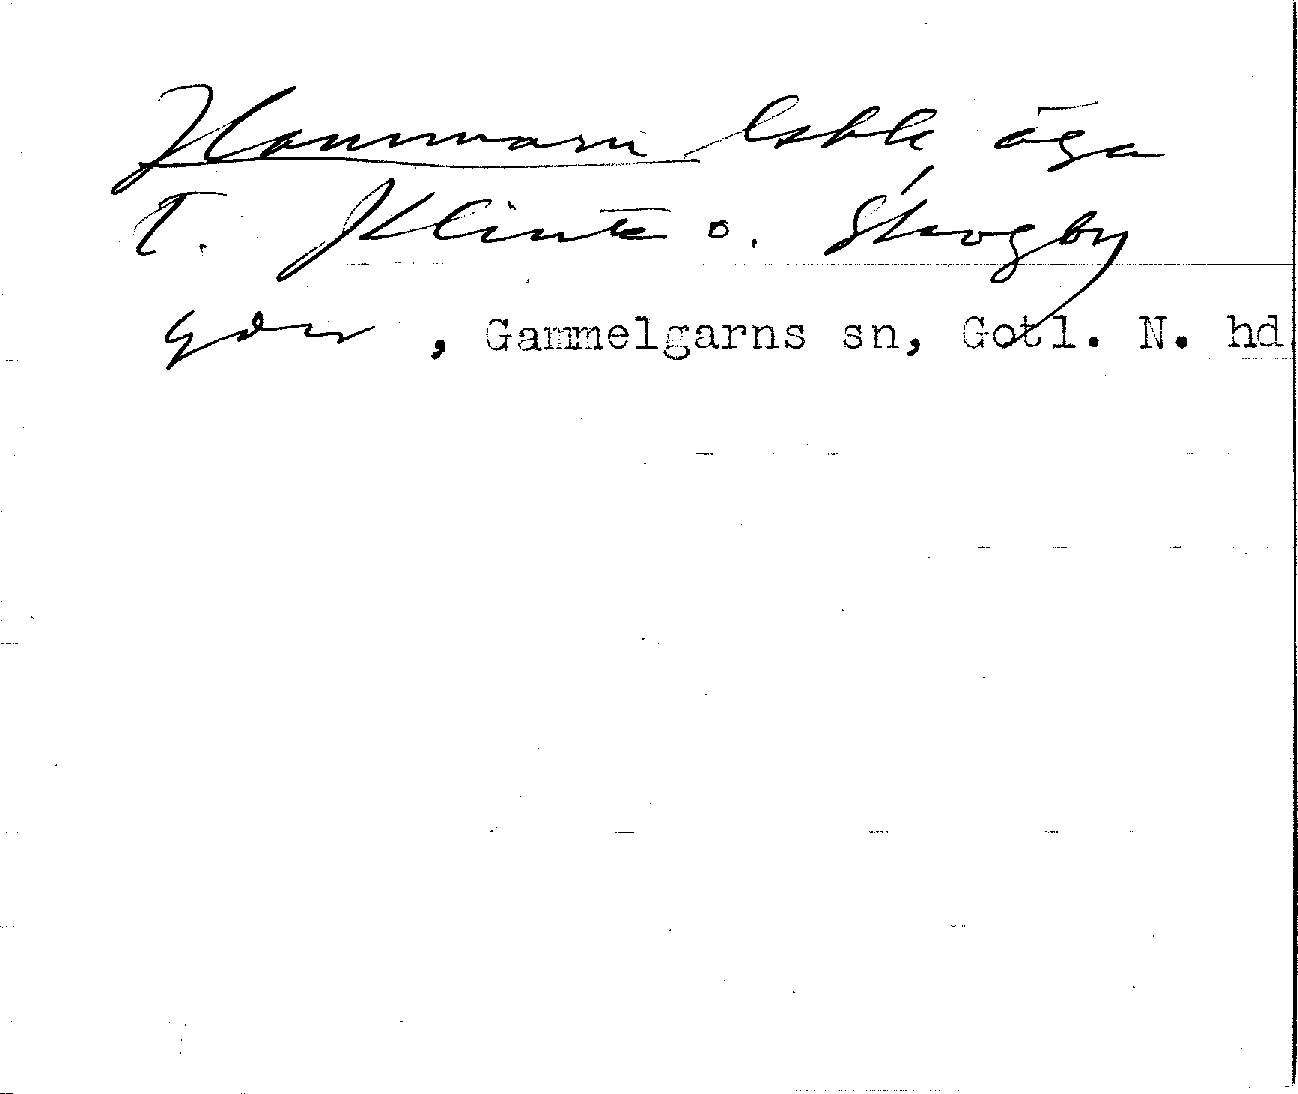 Hammarn lokk äga
T. Klinte o. Skogby
gdar, Gammelgarns sn, Gotl. N. hd